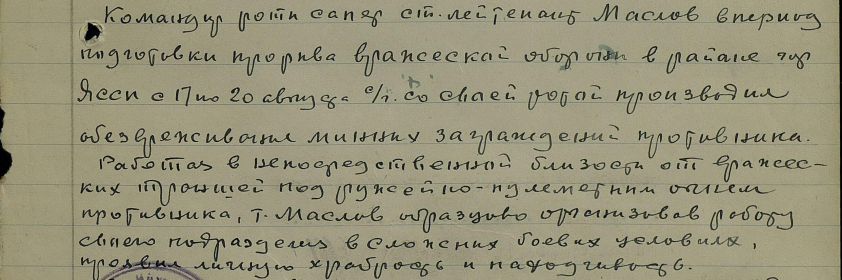 Командир роты сапер ст. лейтенант Маслов в период
подготовки прорыва вражеской обороны в районе гор
Яссы с 17 по 20 августа с/г. со своей ротой производил
обезвреживание минных заграждений противника.
Работая в непосредственной близости от вражес-
ких траншей под ружейно-пулеметным огнем
противника, т. Маслов образцово организовав работу
своего подразделения в сложных боевых условиях,
проявил личную храбрость и находчивость.